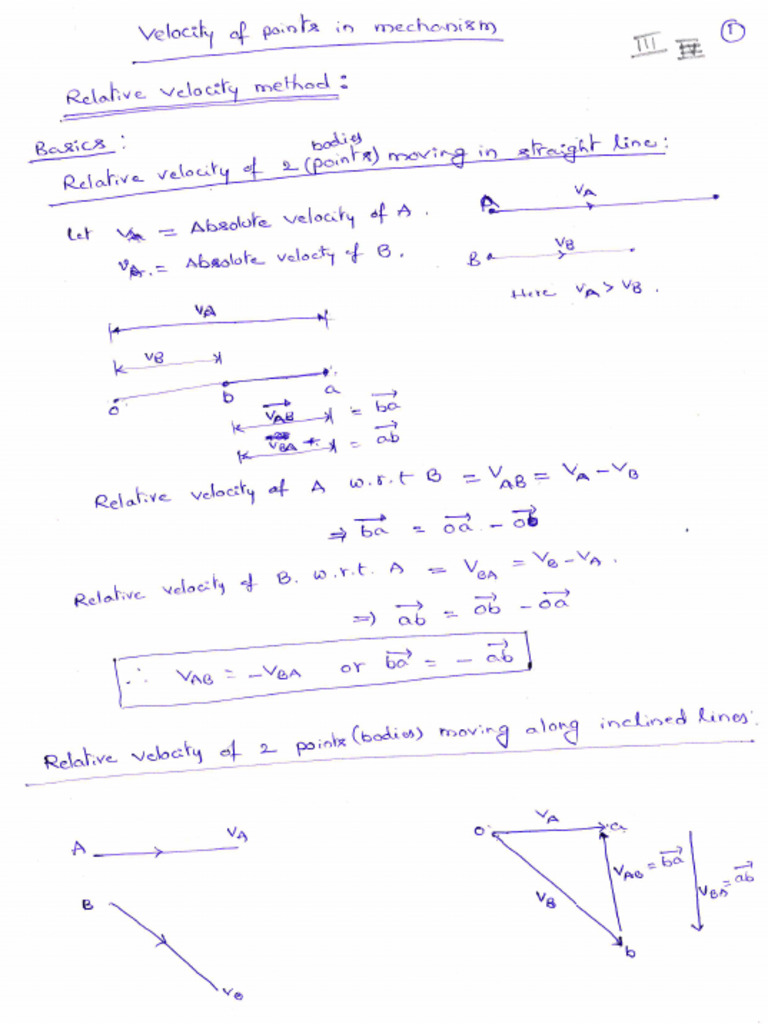 Velocity of points in mechanism
III
1
Relative velocity method:
Basics:
bodies
Relative velocity of 2 (points) moving in straight line:
Let VA = Absolute velocity of A.
VA. = Absolute velocity of B.
A VA
B VB
Here VA > VB.
VA
VB
o b a
VAB = ba
VBA = ab
Relative velocity of A w.r.t B = VAB = VA - VB
⇒ ba = oa - ob
Relative velocity of B. w.r.t. A = VBA = VB - VA.
⇒ ab = ob - oa
∴ VAB = -VBA or ba = - ab
Relative velocity of 2 points (bodies) moving along inclined lines:
A VA
B VB
o VA a
VAB = ba
VBA = ab
VB
b